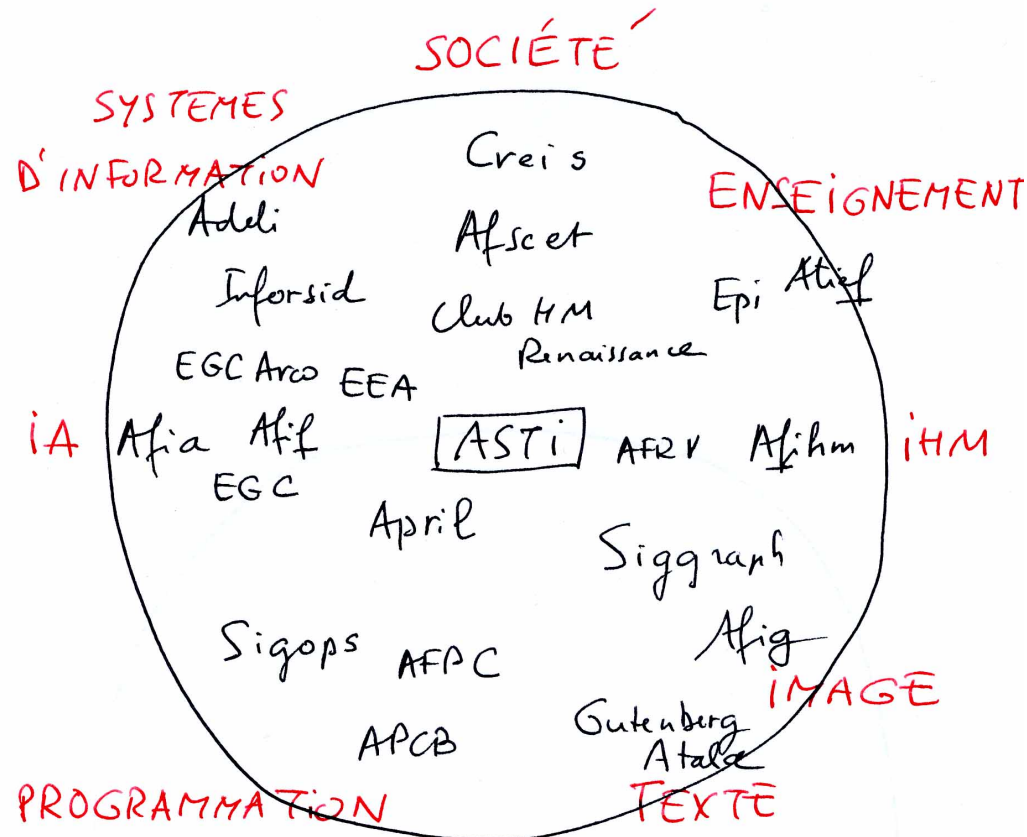 SOCIÉTÉ
SYSTEMES
D'INFORMATION
Creis
ENSEIGNEMENT
Adeli
Afscet
Inforsid
Epi Atief
Club HM
Renaissance
EGC Arco EEA
iA
Afia Afif
ASTi
AFRV Afihm
iHM
EGC
April
Siggraph
Sigops AFPC
Afig
iMAGE
APCB
Gutenberg
Atala
PROGRAMMATiON
TEXTE